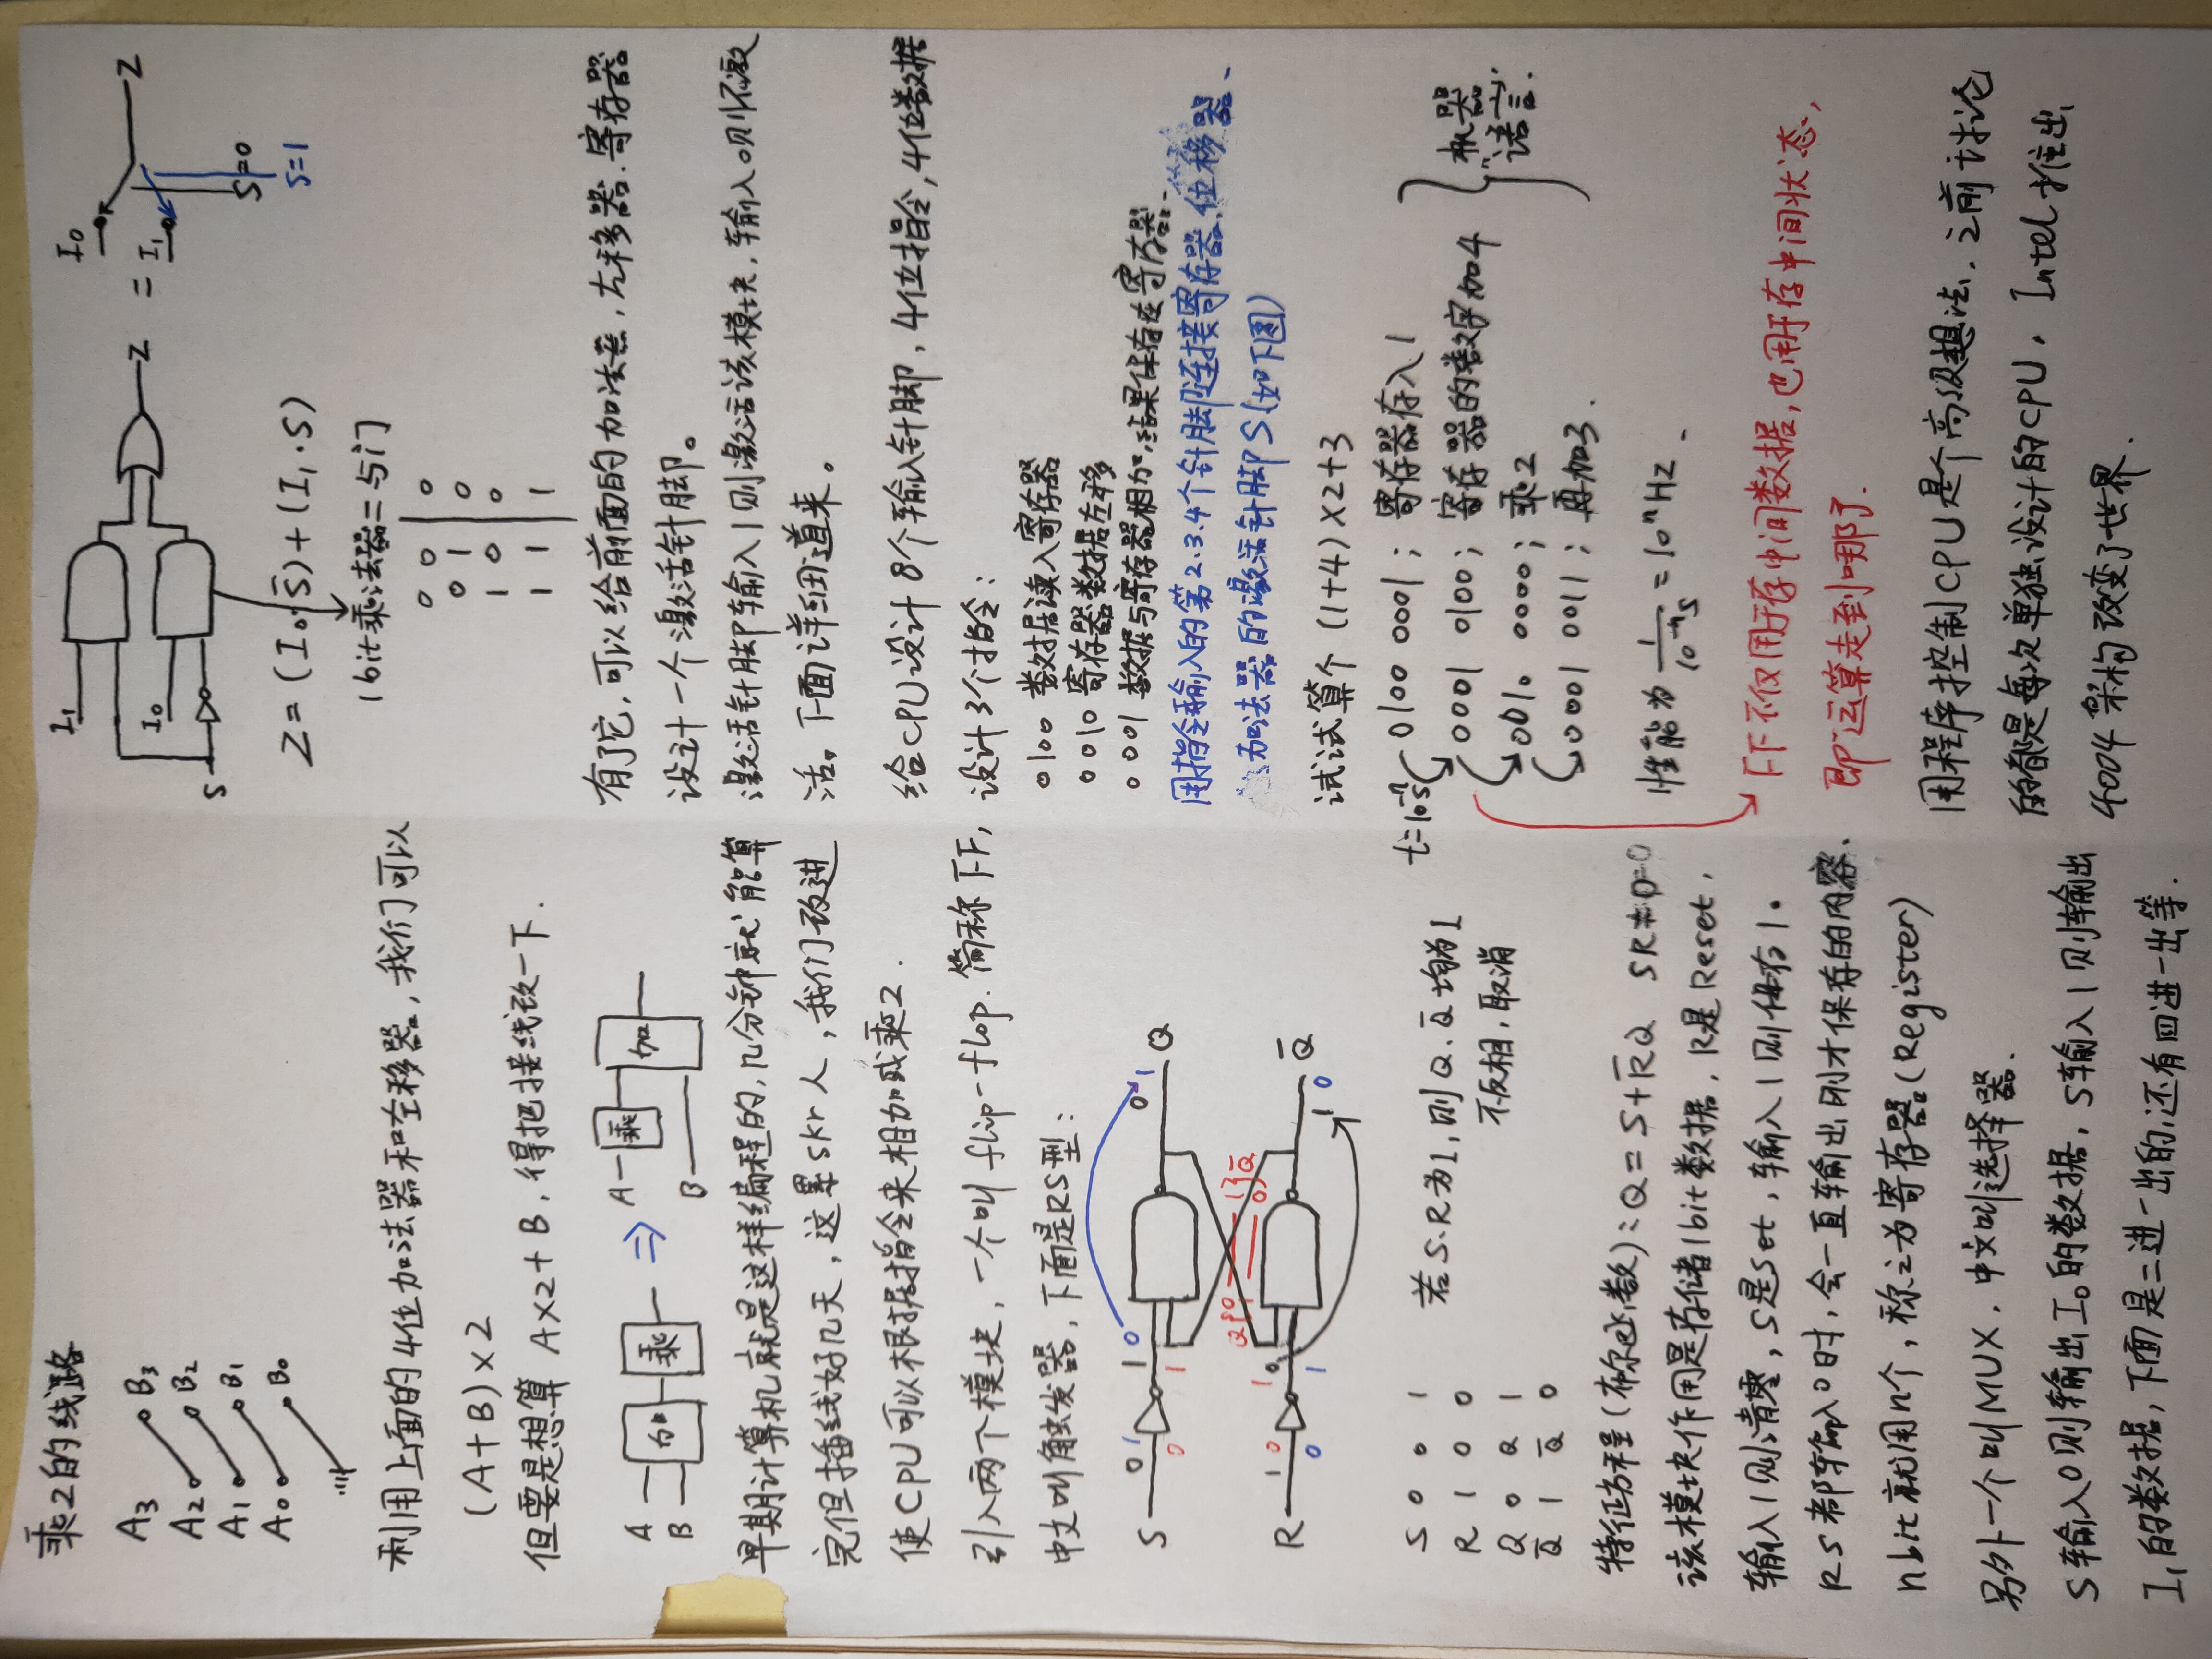 乘2的线路
A3 B3
A2 B2
A1 B1
A0 B0
利用上面的4位加法器和左移器，我们可以
(A+B)×2
但要是想算 A×2+B，得把接线改一下.
A B 加 乘 ⇒ A 乘 B 加
早期计算机就是这样编程的，几分钟就能算
完但插线好几天，这累skr人，我们改进
使CPU可以根据指令来相加或乘2.
引入两个模块，一个叫 flip-flop. 简称FF，
中文叫触发器，下面是RS型：
S 0 1 1 0 0 1 Q
0 1
Q{0 1 1 0}Q̅
R 1 0 1 0 Q̅
0 1 1 0
S 0 0 1
R 1 0 0
Q 0 Q 1
Q̅ 1 Q̅ 0
若S.R为1，则Q、Q̅均为1
不反相，取消
特征方程(布尔函数)：Q=S+R̅Q SR=0
该模块作用是存储1bit数据，R是Reset，
输入1则清零，S是Set，输入1则保存1。
RS都输入0时，会一直输出刚才保存的内容.
nbit就用n个，称之为寄存器(Register)
另外一个叫MUX，中文叫选择器.
S输入0则输出I0的数据，S输入1则输出
I1的数据，下面是二进一出的，还有四进一出等.
I1
I0
S
Z = I0 I1 Z
S=0
S=1
Z=(I0·S̅)+(I1·S)
1bit乘法器=与门
0 0 0
0 1 0
1 0 0
1 1 1
有了它，可以给前面的加法器，左移器.寄存器
设计一个激活针脚。
激活针脚输入1则激活该模块，输入0则不激
活。下面详细道来。
给CPU设计8个输入针脚，4位指令，4位数据
设计3个指令：
0100 数据读入寄存器
0010 寄存器数据左移
0001 数据与寄存器相加，结果保存在寄存器.
用指令输入的第2.3.4个针脚连接寄存器.位移器、
加法器的激活针脚S(如下图)
试试算个 (1+4)×2+3
t=10⁻ⁿs
0100 0001；寄存器存入1
0001 0100；寄存器的数字加4
0010 0000；乘2
0001 0011；再加3.
机器
"语言".
性能为 1/10⁻ⁿs = 10ⁿHz.
FF不仅用于存中间数据，也用于存中间状态，
即运算走到哪了.
用程序控制CPU是个高级想法，之前讨论
的都是每次单独设计的CPU，Intel推出
4004架构改变了世界.